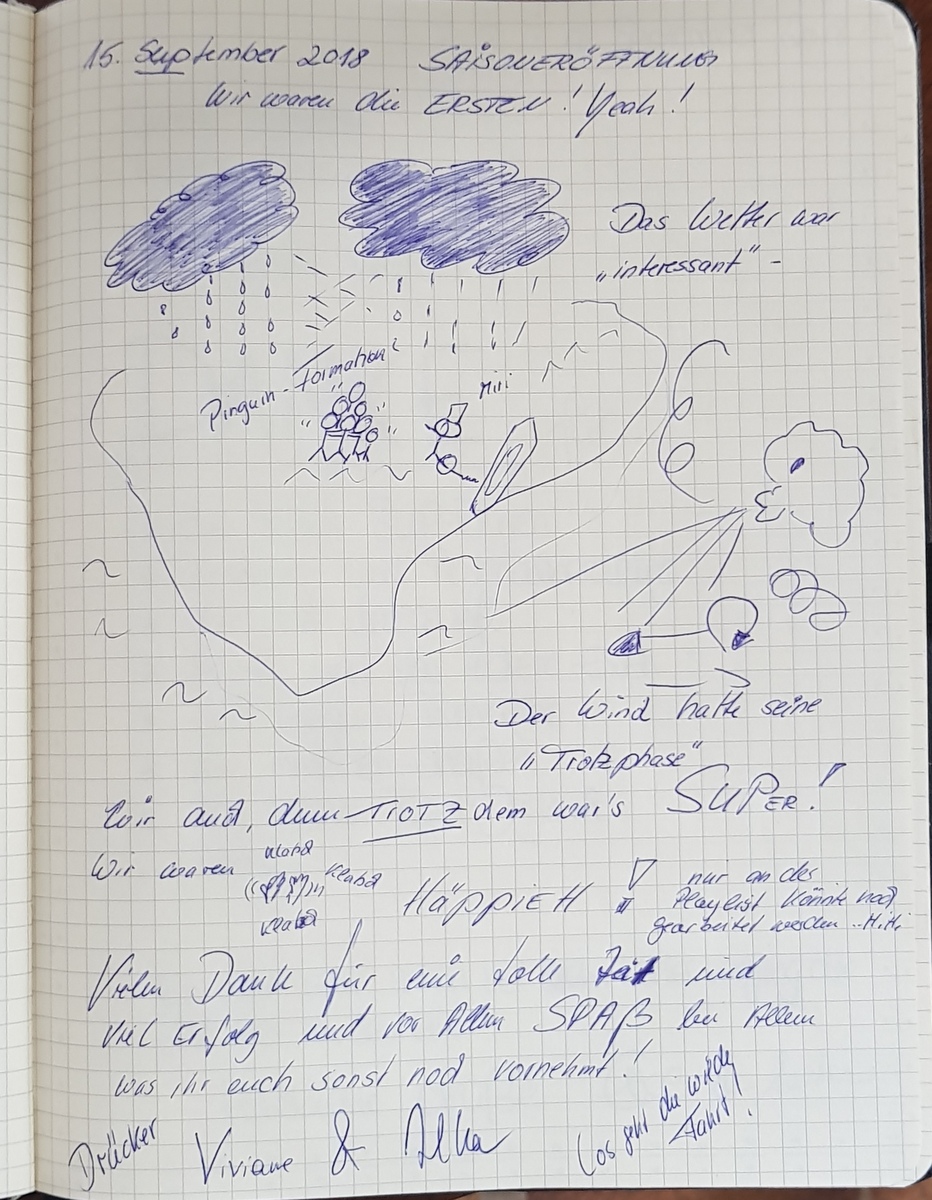 15. September 2018 SAISONERÖFFNUNG
Wir waren die ERSTEN! Yeah!
Das Wetter war
„interessant“ -
Pinguin-Formation
Miri
Der Wind hatte seine
„Trotzphase“
Wir auch, denn TROTZdem war's SUPER!
Wir waren
HÄPPIEH!
nur an der
Playlist könnte noch
gearbeitet werden .. Hi.Hi.
Vielen Dank für eine tolle Zeit und
viel Erfolg und vor Allem SPAß bei Allem
was ihr euch sonst noch vornehmt!
Drücker
Viviane & Ilka
Los geht die wilde
Fahrt!